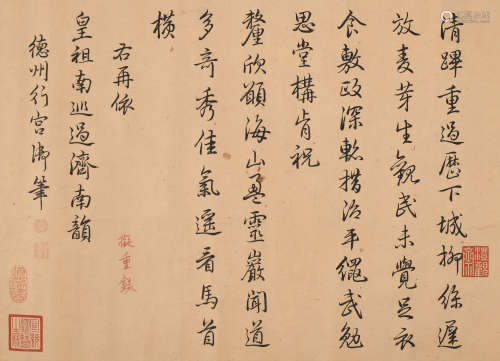 清蹕重過歷下城柳絲遲
放麦芽生觀民未覺足衣
食敷政深慙措治平繩武勉
思堂構肯祝
釐欣願海山盈靈巖聞道
多奇秀佳氣遙看馬首
橫
右再依
皇祖南巡過濟南韻
德州行宮御筆